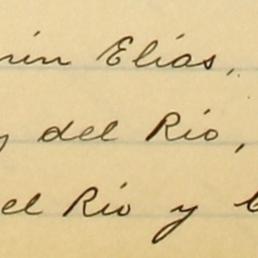 Elías,
y del Río,
el Río y